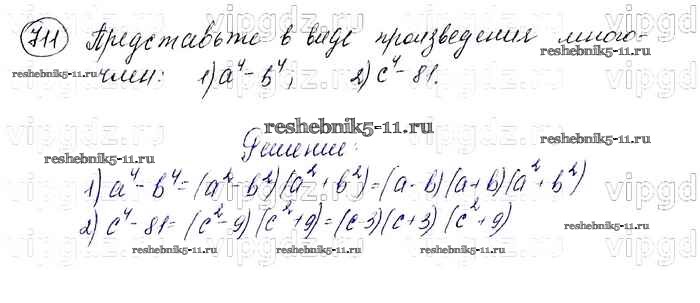 711 Представьте в виде произведения много-
член: 1) a⁴ - b⁴; 2) c⁴ - 81.
reshebnik5-11.ru reshebnik5-11.ru reshebnik5-11.ru
reshebnik5-11.ru
Решение:
1) a⁴ - b⁴ = (a² - b²)(a² + b²) = (a - b)(a + b)(a² + b²)
2) c⁴ - 81 = (c² - 9)(c² + 9) = (c - 3)(c + 3)(c² + 9)
reshebnik5-11.ru reshebnik5-11.ru
vipgdz.ru